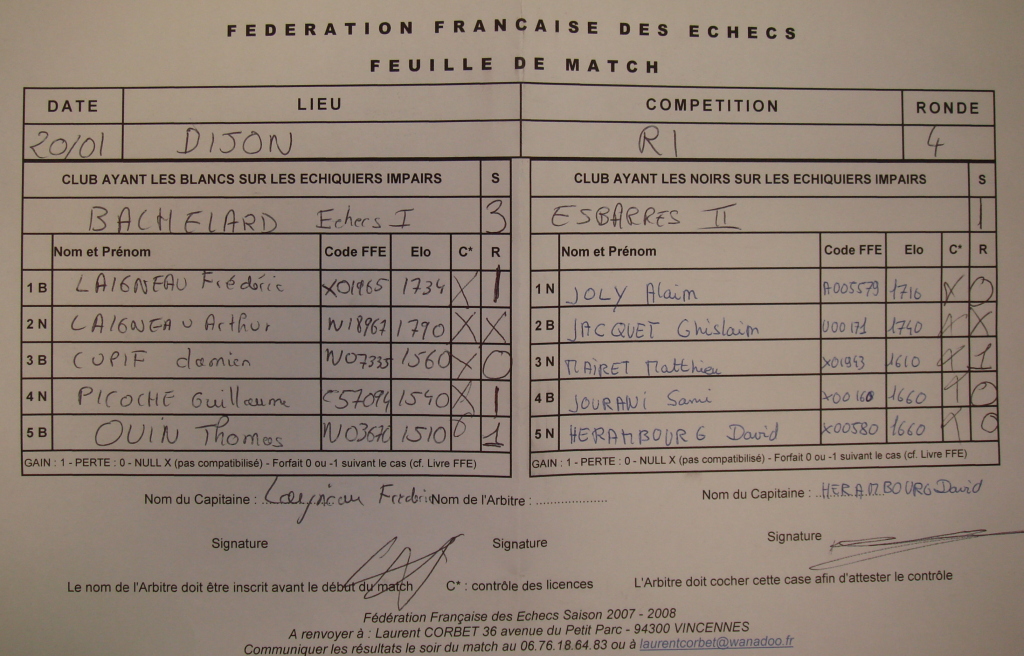 FEDERATION FRANCAISE DES ECHECS
FEUILLE DE MATCH
DATE LIEU COMPETITION RONDE
20/01 DIJON R1 4
CLUB AYANT LES BLANCS SUR LES ECHIQUIERS IMPAIRS S CLUB AYANT LES NOIRS SUR LES ECHIQUIERS IMPAIRS S
BACHELARD Echecs I 3 ESBARRES II 1
Nom et Prénom Code FFE Elo C* R Nom et Prénom Code FFE Elo C* R
1 B LAIGNEAU Frédéric X01965 1734 X 1 1 N JOLY Alain A005579 1716 X 0
2 N LAIGNEAU Arthur N18967 1790 X X 2 B JACQUET Ghislaim U00171 1740 X X
3 B CUPIF damien N07335 1560 X 0 3 N MAIRET Matthieu X01943 1610 X 1
4 N PICOCHE Guillaume C57094 1540 X 1 4 B JOURANI Sami X00160 1660 0
5 B OUIN Thomas N03670 1510 1 5 N HERAMBOURG David X00580 1660 X 0
GAIN : 1 - PERTE : 0 - NULL X (pas compatibilisé) - Forfait 0 ou -1 suivant le cas (cf. Livre FFE) GAIN : 1 - PERTE : 0 - NULL X (pas compatibilisé) - Forfait 0 ou -1 suivant le cas (cf. Livre FFE)
Nom du Capitaine : Laigneau Frédéric Nom de l'Arbitre : .................... Nom du Capitaine : HERAMBOURG David
Signature Signature Signature
Le nom de l'Arbitre doit être inscrit avant le début du match C* : contrôle des licences L'Arbitre doit cocher cette case afin d'attester le contrôle
Fédération Française des Echecs Saison 2007 - 2008
A renvoyer à : Laurent CORBET 36 avenue du Petit Parc - 94300 VINCENNES
Communiquer les résultats le soir du match au 06.76.18.64.83 ou à laurentcorbet@wanadoo.fr